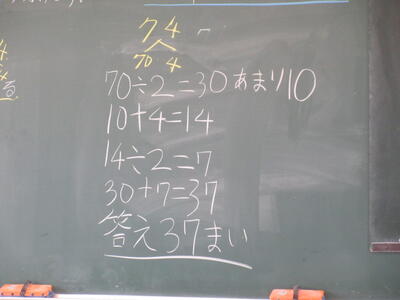 74
70 4
70÷2=30あまり10
10+4=14
14÷2=7
30+7=37
答え37まい